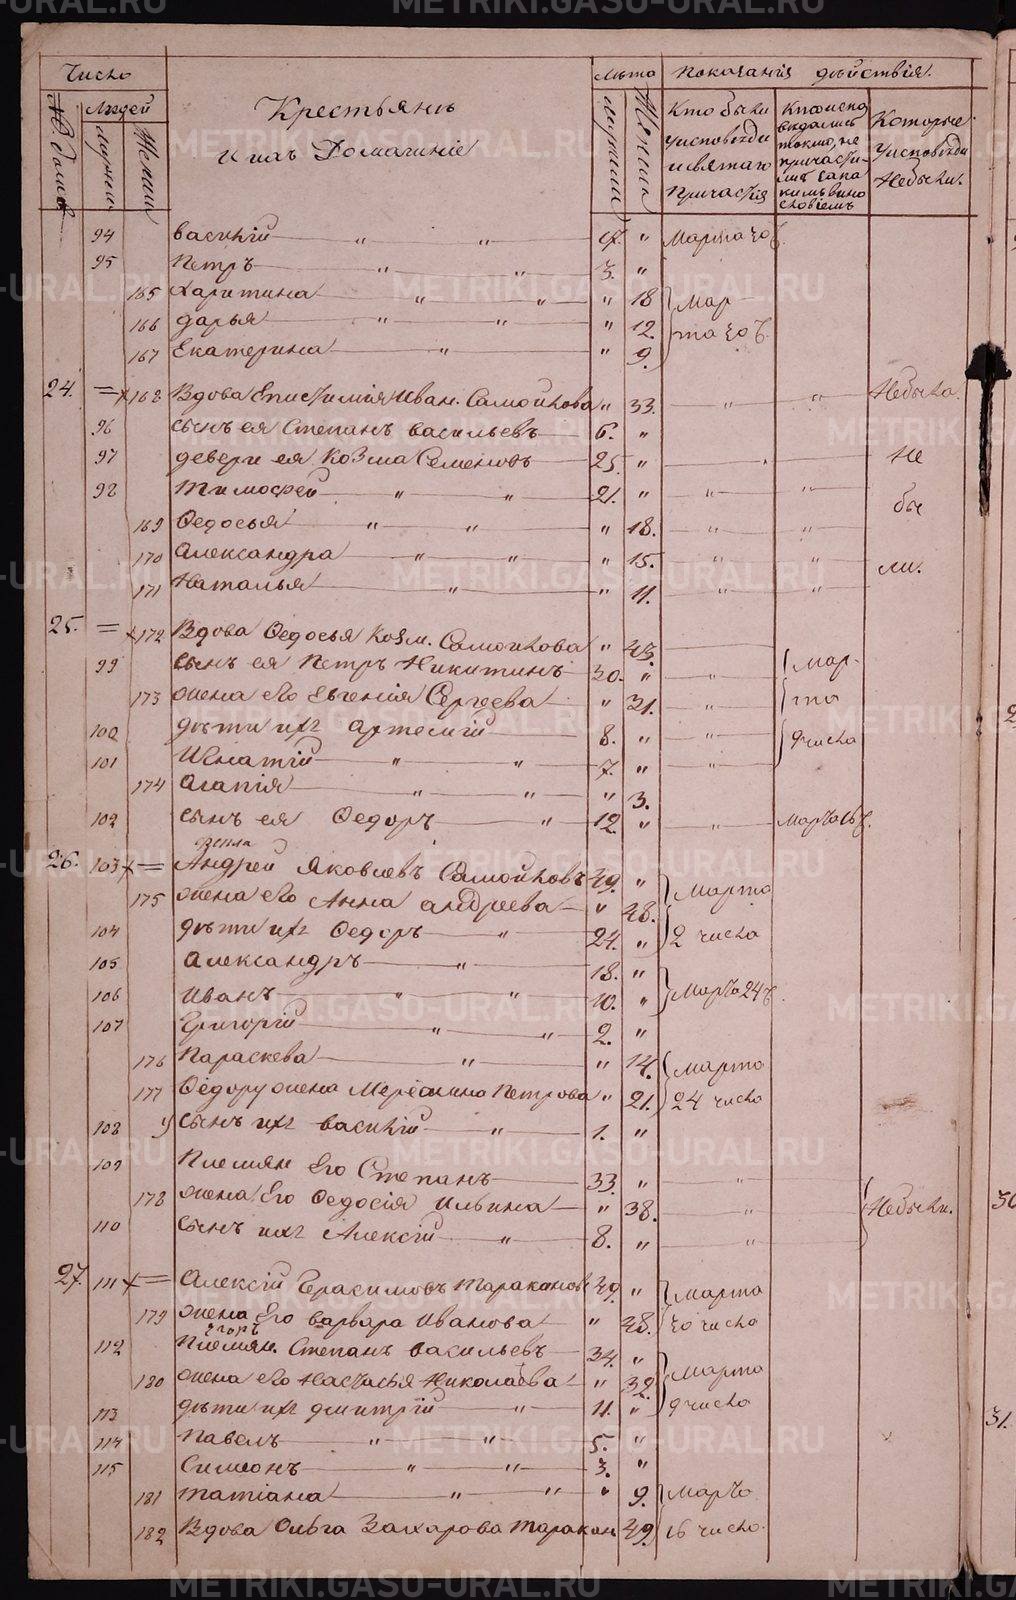 Число
Лѣта
Показанія дѣйствія.
№ домовъ
Людей
мужеска
женска
Крестьянъ
и ихъ Домашніе
мужеска
женска
Кто были у исповѣди и святаго причастія
Кто исповѣдались токмо, не причастились
Которые у исповѣди не были.
94 василій " " " Марта 20 ч.
95 Петръ " " 3. "
165 Харитина " " " 18 Мар-
166 дарья " " " 12. та 20 ч.
167 Екатерина " " 9.
24. 168 Вдова Епистимія Иван. Самойлова " 33. " " Небыла.
96 сынъ ея Степанъ васильевъ 6. "
97 девери ея Козма Семеновъ 25. " Не
98 Тимофей " " 21. " " " бы
169 Федосья " " " 18. " "
170 Александра " " " 15. " " ли.
171 Наталья " " 11. " "
25. 172 Вдова Федосья Козм. Самойлова " 43.
99 сынъ ея Петръ Никитинъ 30. " " Мар-
173 жена его Евгенія Сергеева " 31. " та
100 дѣти ихъ Артемій 8. " " 9 числа
101 Игнатій " " 7. " "
174 Агапія " " " 3.
102 сынъ ея Федоръ " 12. " " Марта 16 ч.
26. 103 Андрей Яковлевъ Самойловъ 49. " Марта
175 жена его Анна андреева " 48.
104 дѣти ихъ Федоръ " 24. " 2 числа
105 Александръ " 18. "
106 Иванъ " " 10. " Марта 24 ч.
107 Григорій " " 2. "
176 Параскева " " 14. Марта
177 Федору жена Петрова " 21. 24 числа
108 сынъ ихъ василій " 1. "
109 Племян Его Степанъ 33. " "
178 жена Его Федосія Ильина " 38. " Небыли.
110 сынъ ихъ Алексій " 8. " "
27. 111 Алексій Герасимовъ Таракановъ 39. " Марта
179 жена Его варвара Иванова " 48. 20 числа
112 Племян. Степанъ васильевъ 34. " Марта
180 жена его Настасья Николаева " 32.
113 дѣти ихъ дмитрій " 11. " 9 числа
114 Павелъ " " 5. "
115 Симеонъ " " 3. "
181 татіана " " " 9. Марта
182 Вдова Ольга Захарова Таракан 49. 16 число
METRIKI.GASO-URAL.RU